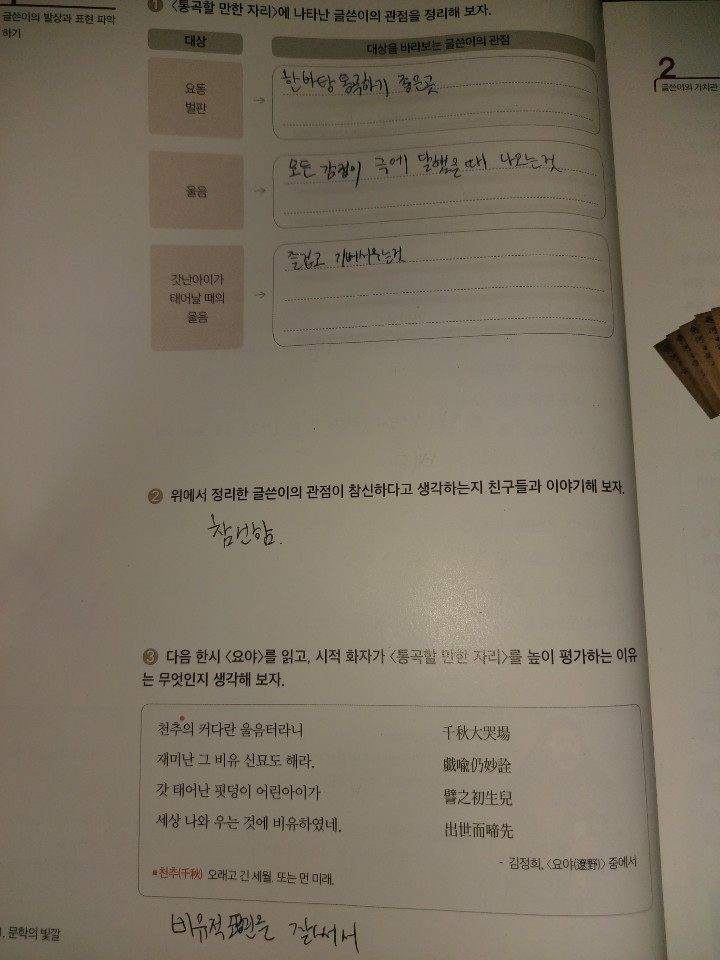 글쓴이의 발상과 표현 파악
하기
1 <통곡할 만한 자리>에 나타난 글쓴이의 관점을 정리해 보자.
대상
대상을 바라보는 글쓴이의 관점
요동
벌판
한바탕 통곡하기 좋은곳
울음
모든 감정이 극에 달했을 때 나오는것
갓난아이가
태어날 때의
울음
즐겁고 기뻐서우는것
2 위에서 정리한 글쓴이의 관점이 참신하다고 생각하는지 친구들과 이야기해 보자.
참신함.
3 다음 한시 <요야>를 읽고, 시적 화자가 <통곡할 만한 자리>를 높이 평가하는 이유
는 무엇인지 생각해 보자.
천추의 커다란 울음터라니 千秋大哭場
재미난 그 비유 신묘도 해라. 戲喩仍妙詮
갓 태어난 핏덩이 어린아이가 譬之初生兒
세상 나와 우는 것에 비유하였네. 出世而啼先
- 김정희, <요야(遼野)> 중에서
•천추(千秋) 오래고 긴 세월. 또는 먼 미래.
비유적 표현을 잘써서
. 문학의 빛깔
2
글쓴이의 가치관